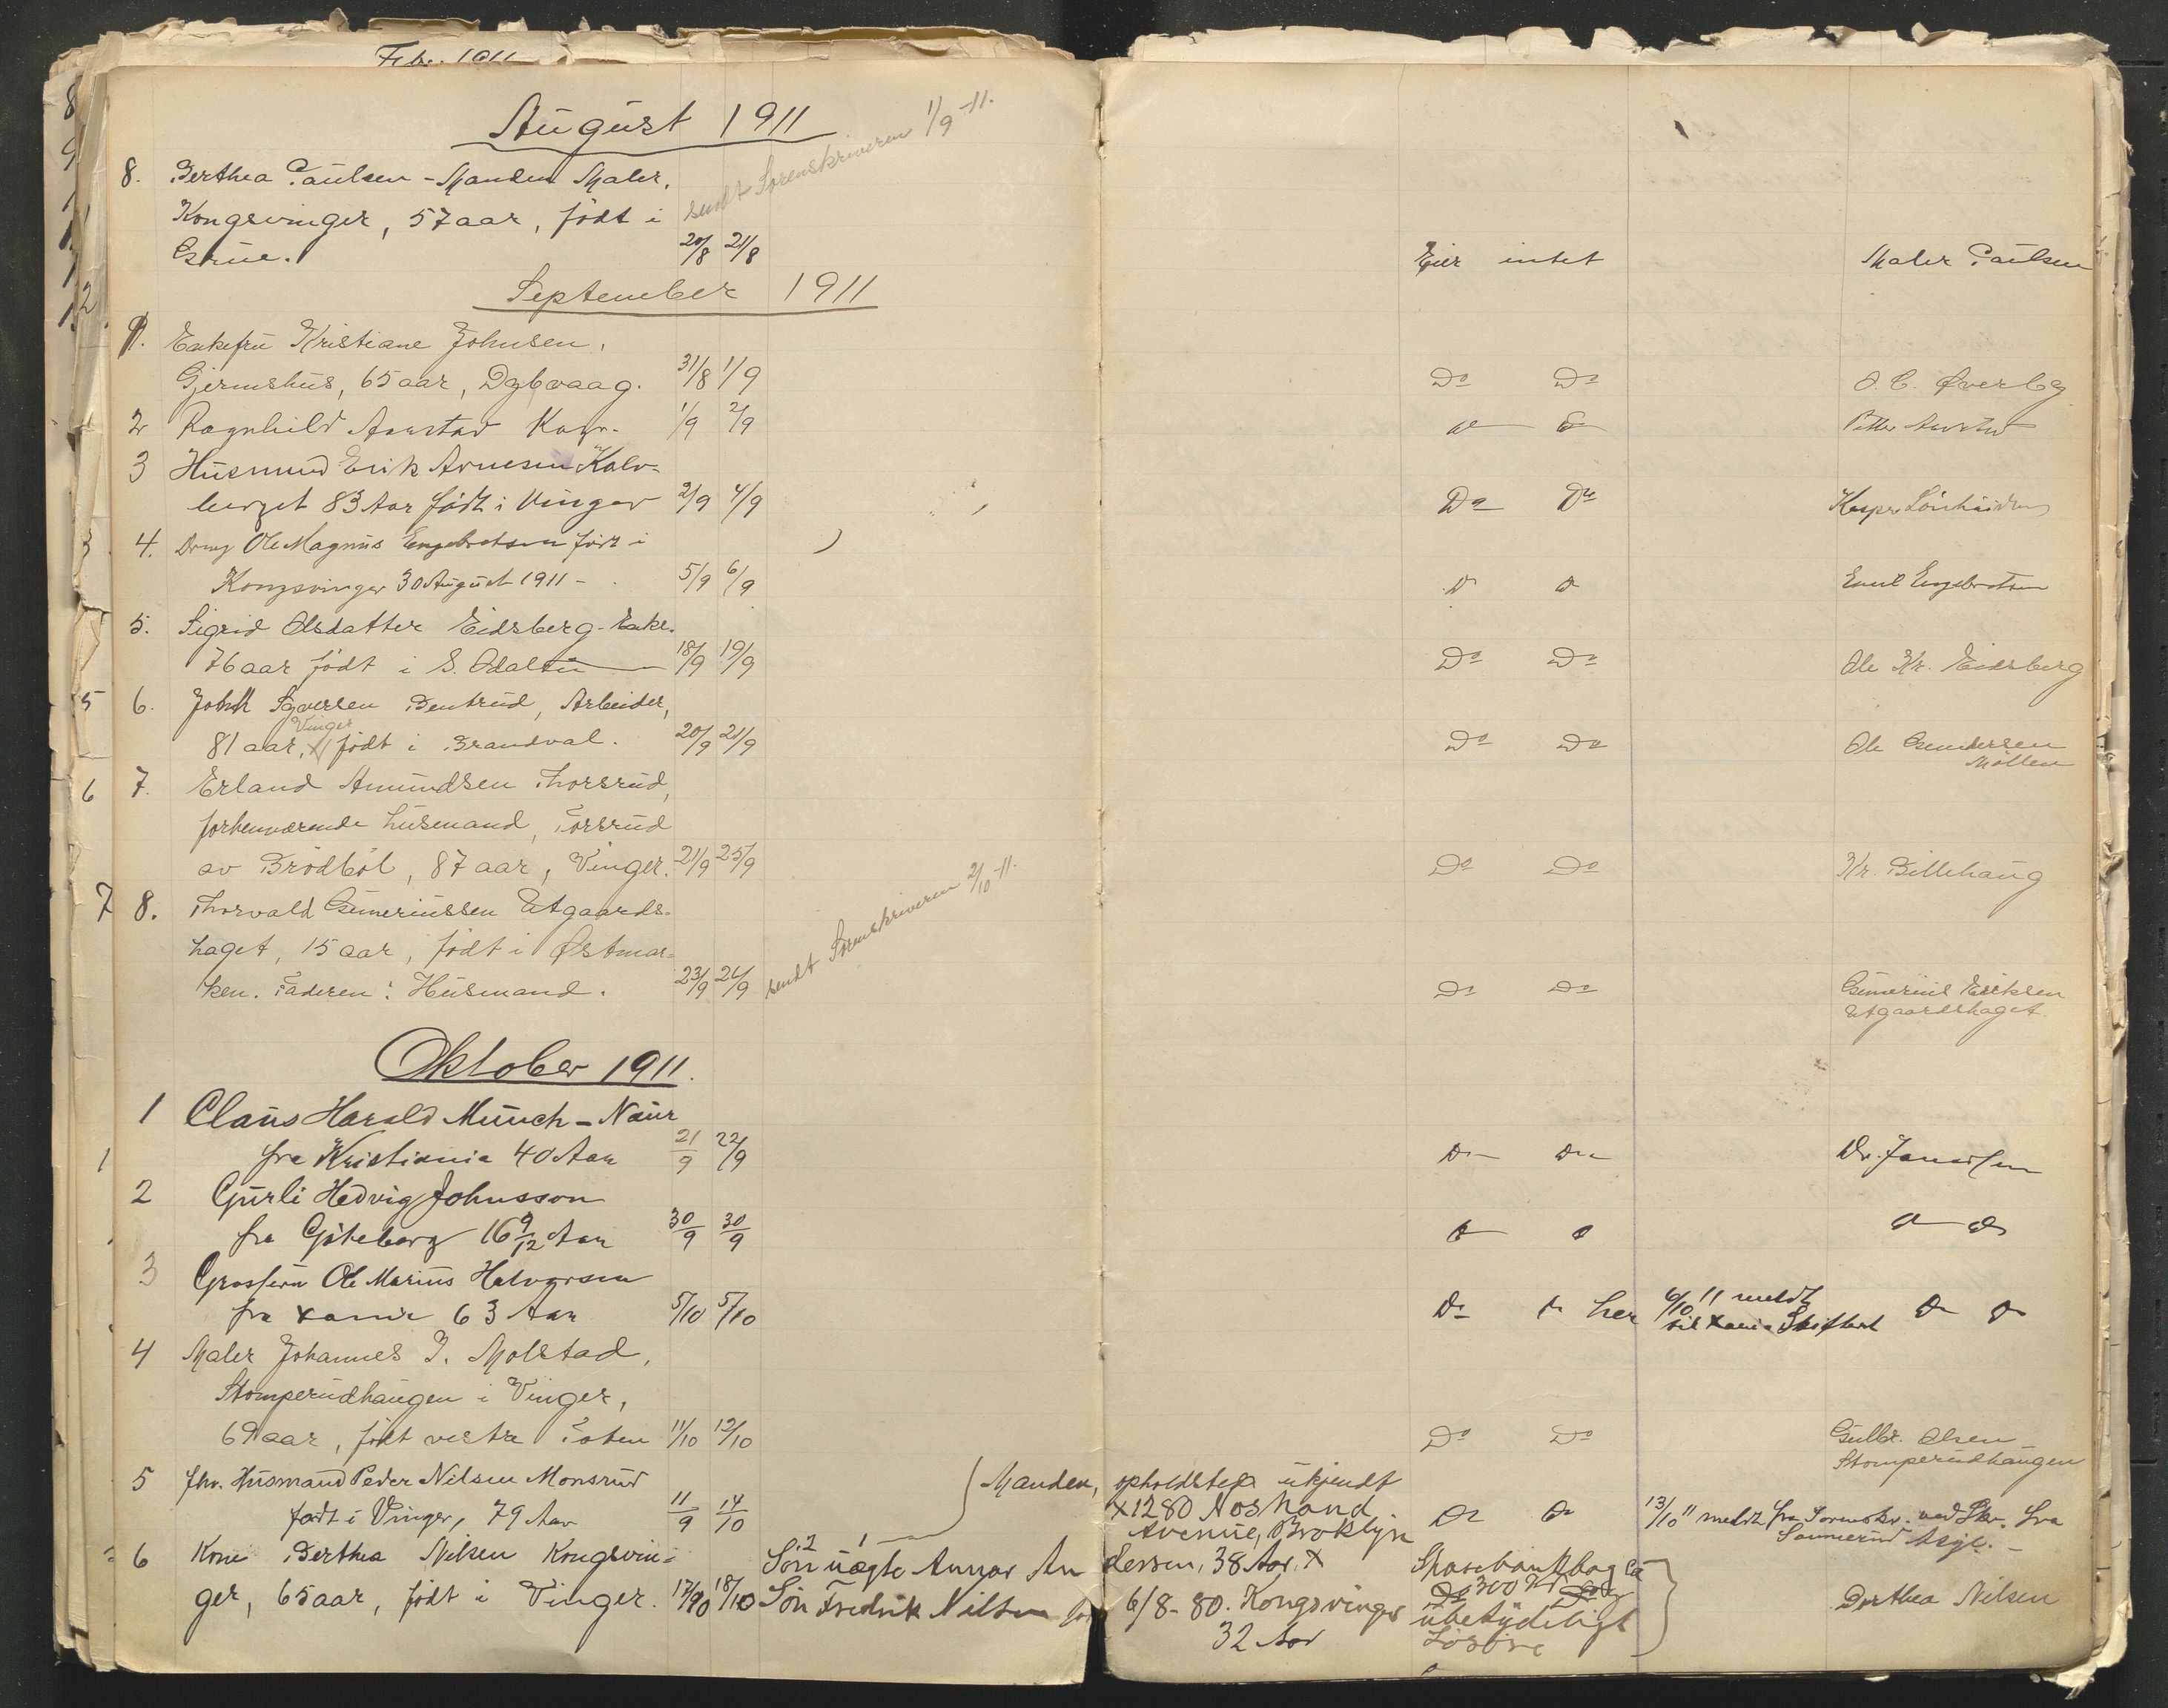 Febr. 1911
August 1911
sendt Sorenskriveren 1/9-11.
8. Berthea Paulsen - Manden Maler,
Kongsvinger, 57 aar, født i
Grue. 20/8 21/8 Eier intet Maler Paulsen
September 1911
1. Enkefru Kristiane Johnsen,
Gjermshus, 65 aar, Dybvaag. 31/8 1/9 Do Do O. C. Øverby
2 Ragnhild Aarstad Kongv. 1/9 2/9 Do Do Petter Aarstad
3 Husmand Erik Arnesen Kalv-
berget 83 Aar født i Vinger 2/9 4/9 Do Do Kasper
4. Dreng Ole Magnus Engebretsen født i
Kongsvinger 30 August 1911 - 5/9 6/9 D D Emil Engebretsen
5. Sigrid Olsdatter Eidsberg - Enke.
76 aar født i S. Odalen 18/9 19/9 Do Do Ole Kr. Eidsberg
5 6. John Syversen Bentrud, Arbeider,
Vinger
81 aar, født i Brandval. 20/9 21/9 Do Do Ole Gundersen
Møllen
6 7. Erland Amundsen Thorsrud,
forhenværende husmand, Torsrud
av Brødbøl, 87 aar, Vinger. 21/9 25/9 Do Do Kr. Billehaug
7 8. Thorvald Guneriussen Utgaards-
haget, 15 aar, født i Østmar-
ken. Faderen: Husmand. 23/9 26/9 sendt Sorenskriveren 2/10-11. Do Do Gunerius Eriksen
Utgaardshaget.
Oktober 1911.
1 Claus Harald Munch - Naur
1 fra Kristiania 40 Aar 21/9 22/9 Do Do Dr.
2 Gurli Hedvig Johnsson
fra Gøteborg 16 9/12 Aar 30/9 30/9 D D D Do
3 Grosserer Ole Marius Halvorsen
fra Xania 63 Aar 5/10 5/10 Do Do her 6/10 11 meldt
til Xania Skifteret D D
4 Maler Johannes J. Molstad,
Stomperudhaugen i Vinger,
69 aar, født vestre Toten 11/10 12/10 Do Do Gulbr. Olsen
Stomperudhaugen
5 fhv. Husmand Peder Nilsen Monsrud
født i Vinger, 79 Aar 11/9 14/10 Do Do 13/10 11 meldt fra Sorenskr. ved Skr. fra
Asyl. -
Manden, opholdsted ukjendt
X 1280 Nostrand
Avenue, Broklyn
6 Kone Berthea Nilsen Kongsvin-
ger, 65 aar, født i Vinger. 17/10 18/10
2 1
Søn uægte Annar An dersen, 38 Aar. X
Søn Fredrik Nilsen før 6/8-80. Kongsvinger
32 Aar
Sparebankbog ca
300 Kr
ubetydeligt
Løsøre
Dorthea Nilsen